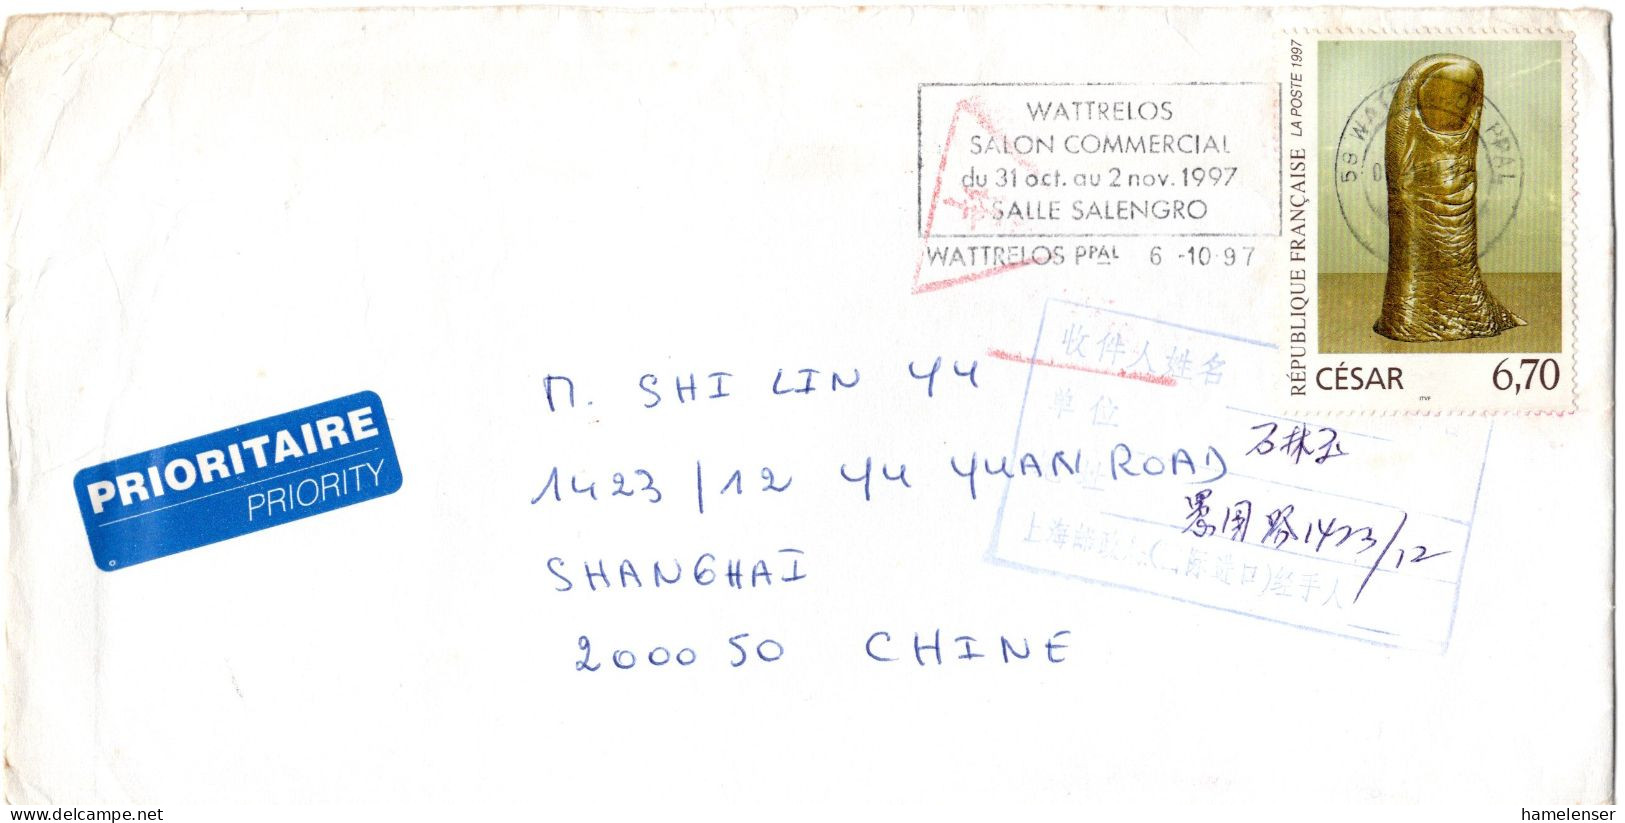 WATTRELOS
SALON COMMERCIAL
du 31 oct. au 2 nov. 1997
SALLE SALENGRO
WATTRELOS PPAL 6 -10-97
RÉPUBLIQUE FRANÇAISE LA POSTE 1997
59 WATTRELOS PPAL
CÉSAR 6,70
ITVF
PRIORITAIRE
PRIORITY
M. SHI LIN YU
1423/12 YU YUAN ROAD
SHANGHAI
200050 CHINE
收件人姓名
单位
石林玉
愚园路1423/12
上海邮政 (国际进口)经手人
hamelenser